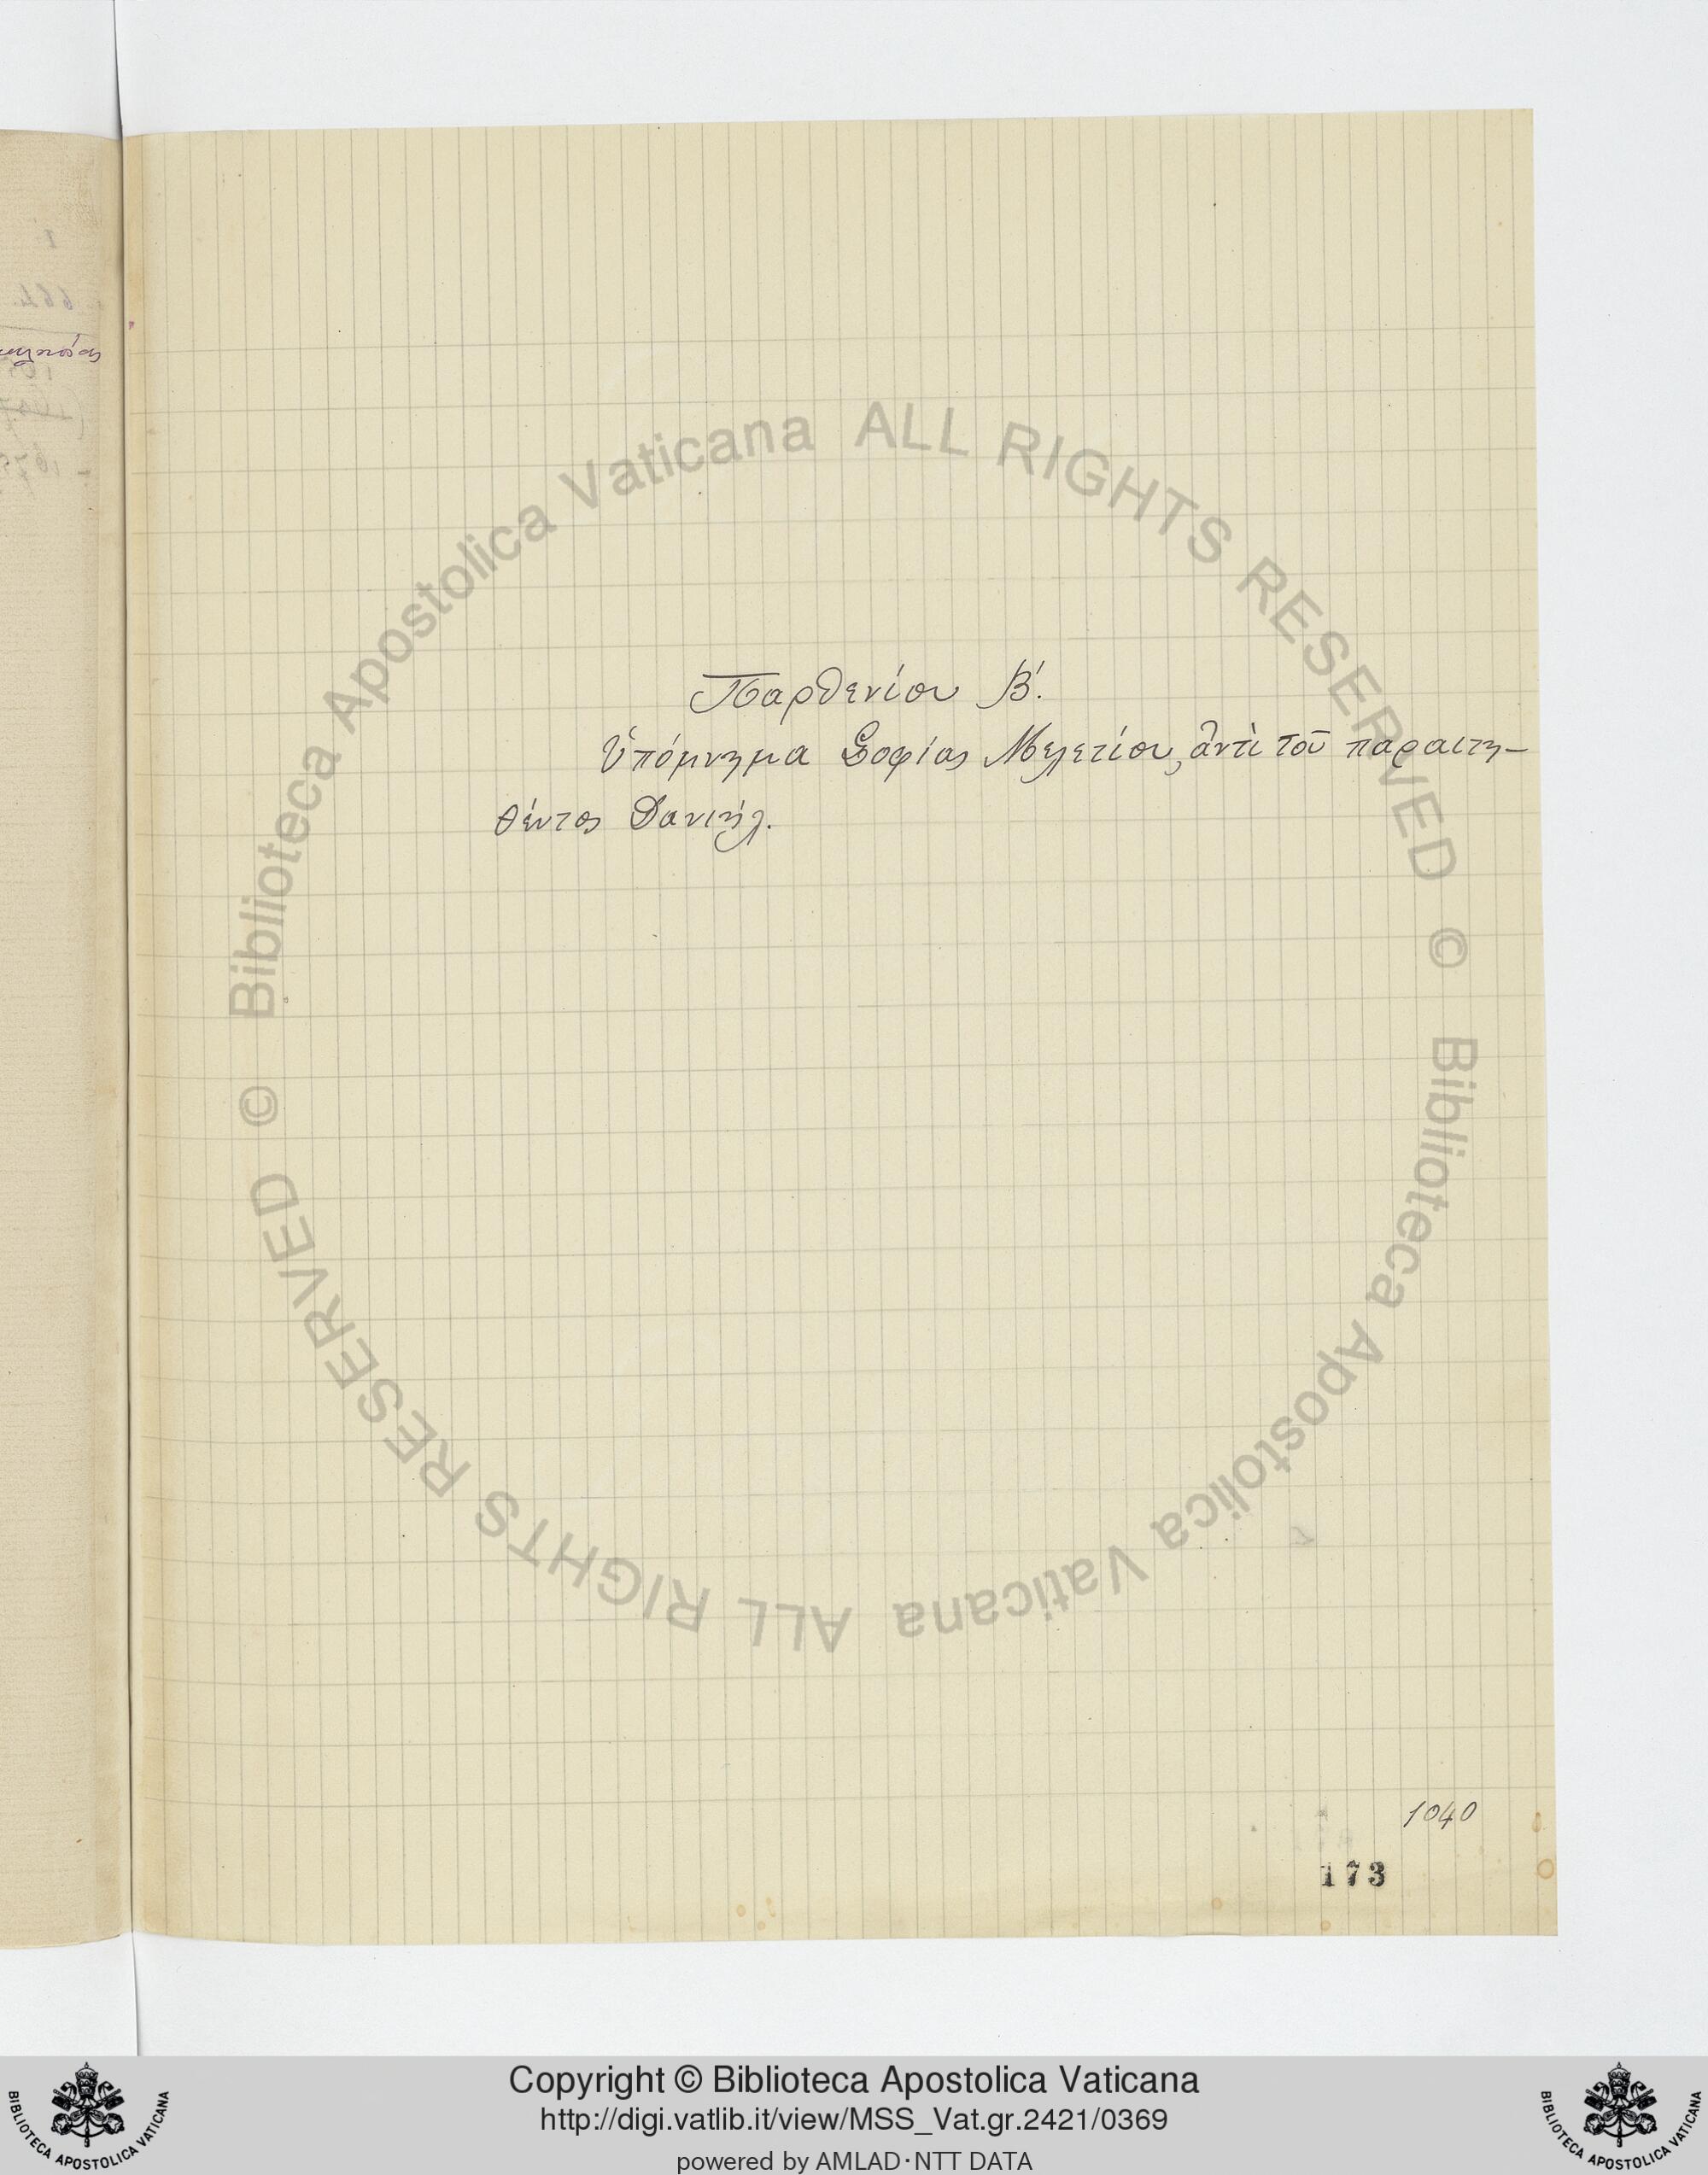 Παρθενίου Β΄.
Ὑπόμνημα Σοφίας Μελετίου, ἀντὶ τοῦ παραιτη-
θέντος Δανιήλ.
1040
173
© Biblioteca Apostolica Vaticana ALL RIGHTS RESERVED
© Biblioteca Apostolica Vaticana ALL RIGHTS RESERVED
Copyright © Biblioteca Apostolica Vaticana
http://digi.vatlib.it/view/MSS_Vat.gr.2421/0369
powered by AMLAD·NTT DATA
BIBLIOTECA APOSTOLICA VATICANA
BIBLIOTECA APOSTOLICA VATICANA